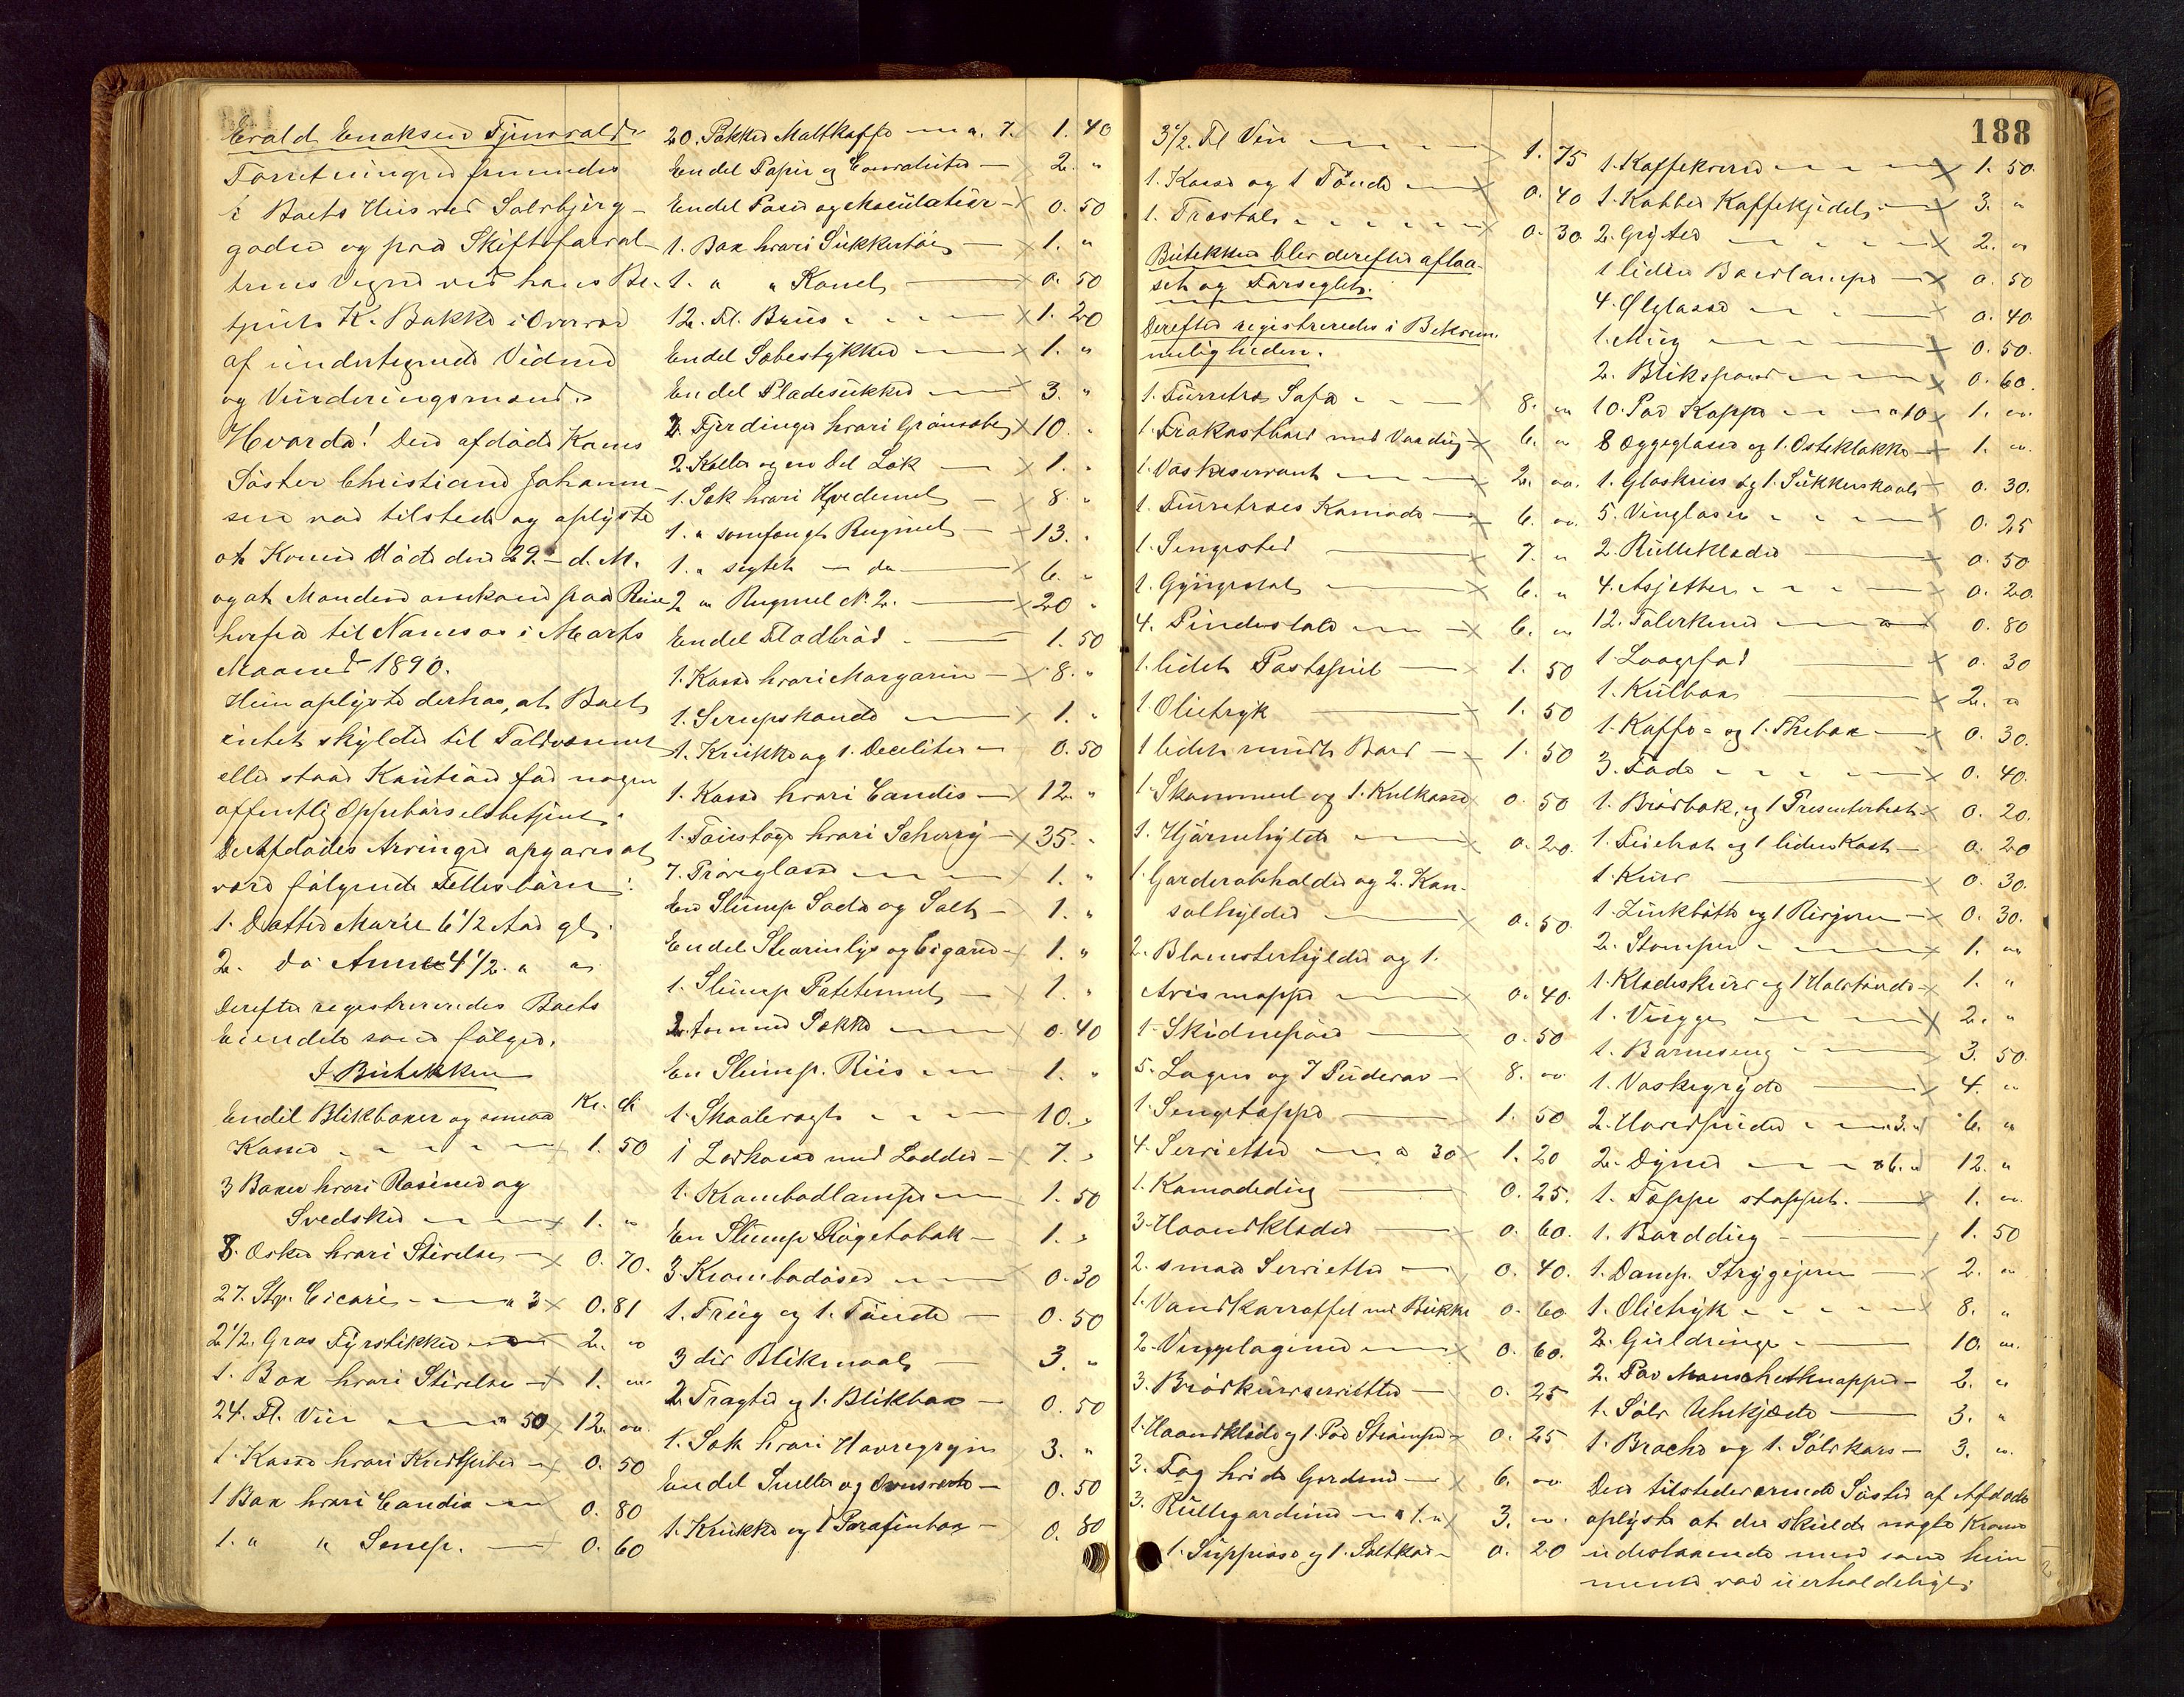 Evald Enoksen Tjensvold
Forretningen fremmedes
i Boets Huis ved Solvbjerg-
gaden og paa Skifteforval-
terens Vegne ved hans Be-
tjent K. Bakke i Overvær
af undertegnede Vidner
og Vurderingsmænd.
Hvorda! Den afdøde Kones
Søster Christiane Johanne-
sen var tilstede og oplyste
at Konen døde den 29 - d. M.
og at Manden omkom paa Reise
herfra til Namsos i Marts
Maaned 1890.
Hun oplyste derhos, at Boet
intet skylder til Toldvæsenet
eller staar Kaution for nogen
offentlig Oppebørselsbetjent.
De Afdødes Arvinger opgaves at
være følgende Fellesbørn:
1. Datter Marie 6 1/2 Aar gl.
2. do Anna 4 1/2 " "
Derefter registreredes Boets
Eiendele som følger.
I Butikken
Kr. Ø
Endel Blikboxer og smaa
Kasser x 1. 50
3 Boxer hvori Rosiner og
Svedsker x 1. "
8. Æsker hvori Stivelse x 0. 70.
27. Stp. Cicori a 3 x 0. 81
2 1/2. Gros Fyrstikker 2. "
1. Box hvori Stivelse x 1. "
24. Fl. Vin a 50 x 12. "
1 Kasse hvori x 0. 50
1 Box hvori Candis 0. 80
1. " " Senep. 0. 60
20. Pakker Maltkaffe a. 7. x 1. 40
Endel Papir og Convolutter x 2. "
Endel Poser og Maculatur x 0. 50
1. Box hvori Sukkertøi x 1. "
1. " " Kanel x 0. 50
12. Fl. Brus x 1. 20
Endel Sæbestykker x 1. "
Endel Pladesukker x 3. "
2. Fjerdinger hvori Grønsæbe x 10. "
2. Kaller og en Del Løk x 1. "
1. Sæk hvori Hvedemel x 8. "
1. " somfengt Rugmel x 13. "
1. " sigtet do x 6. "
2 " Rugmel No. 2. x 20 "
Endel Fladbrød 1. 50
1. Kasse hvori Margarin x 8. "
1. Serupskande x 1. "
1. Krukke og 1. Deciliter 0. 50
1. Kasse hvori Candis x 12. "
1. hvori Scherry x 35. "
7. Prøveglasse x 1. "
En Slump Soda og Salt 1. "
Endel Stearinlys og Cigarer x 1. "
1. Slump Potetemel x 1. "
2. tomme Sække x 0. 40
En Slump. Riis 1. "
1. Skaalevægt 10. "
1 Lodkasse med Lodder x 7. "
1. Krambodlampe 1. 50
En Slump Røgetobak 1. "
3 Krambodøser 0. 30
1. Trug og 1. Tønde 0. 50
3 div Blikmaal 3. "
2. Tragter og 1. Blikbox 0. 50
1. Sæk hvori Havregryn 3. "
Endel Sneller og Ovnsværte 0. 50
1. Krukke og 1 Parafinbox 0. 80
188
3 1/2. Fl Vin x 1. 75
1. Kasse og 1 Tønde x 0. 40
1. Træstol x 0. 30
Butikken blev derefter aflaa-
set og Forseglet.
Derefter registreredes i Bekvem-
meligheden.
1. Furretræs Sofa x 8. "
1. Frokostbord med Voxdug x 6. "
1. Vaskeservant x 2. "
1. Furretræes Komode x 6. "
1. Sengested 7. "
1. Gyngestol x 6. "
4. Pindestole x 6. "
1. lidet Postspeil x 1. 50
1. Olietryk x 1. 50
1 lidet rundt Bord 1. 50
1. Skammel og 1. Kulkasse 0. 50
1. Hjørnehylde x 0. 20.
1. Garderobeholder og 2. Kon-
solhylder x 0. 50.
2. Blomsterhylder og 1.
Avismappe x 0. 40.
1. 0. 50
5. Lagen og 7 Pudevar 8. "
1. Sengetæppe 1. 50
4. Servietter a 30 x 1. 20
1. Komodedug 0. 25.
3. Haandklæder x 0. 60.
2. smaa Servietter 0. 40.
1. Vandkarraffel med Bukke 0. 60
2. Vuggelagener x 0. 60.
3. Brødkurvservietter 0. 25
1. Haandklæde og 1. Par Strømper 0. 25
3. Fag hvide Gardiner x 6. "
3. Rullegardiner a 1. " x 3. "
1. og 1. Saltkar 0. 20
1. Kaffekvern x 1. 50.
1. Kobber Kaffekjedel x 3. "
2. Gryter x 2. "
1 liden Bordlampe x 0. 50
4. Ølglasse 0. 40.
1. Mug x 0. 50.
2. Blikspand x 0. 60.
10. Par Kopper a 10 x 1. "
8 Æggeglasse og 1. Osteklokke x 1. "
1. Glaskrus og 1. Sukkerskaal x 0. 30.
5. Vinglasse x 0. 25
2. Rulleklæder 0. 50
4. Asjetter x 0. 20.
12. Talerkener 0. 80
1. Laagefad x 0. 30
1. Kulbox x 2. "
1. Kaffe- og 1. Thebox x 0. 30.
3. Fade x 0. 40.
1. Brødbak, og 1 Presenterbret x 0. 20.
1. Feiebret og 1 liden Kost 0. 20
1. Kurv 0. 30.
1. Zinkbøtte og 1 Rivjern x 0. 30.
2. Stamper x 1. "
1. Klædeskurv og 1 Halvtønde x 1. "
1. Vugge x 2. "
1. Barneseng 3. 50.
1. Vaskegryde x 4. "
2. Hovedpuder a 3. " 6. "
2. Dyner a 6. " 12. "
1. Tæppe stoppet. x 1. "
1. Borddug 1. 50
1. Damp. Strygejern x 2. "
1. Olietryk x 8. "
2. Guldringe 10. "
2. Par Manschetknapper 2. "
1. Sølv Uhrkjæde 3. "
1. Broche og 1. Sølvkors 3. "
Den tilstedeværende Søster af Afdøde
oplyste at der skulde nogle Kroner
udestaaende men som hun
mente var uerholdelige.